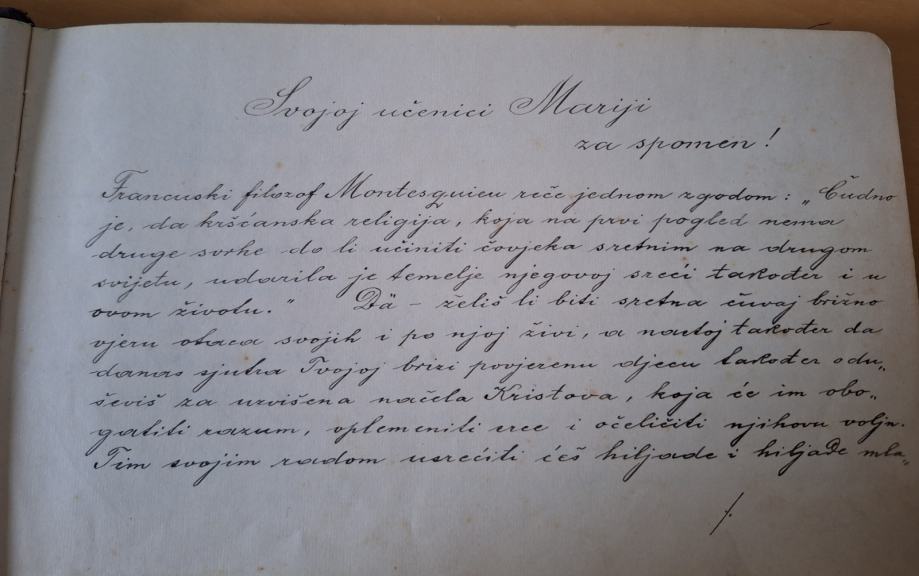 Svojoj učenici Mariji
za spomen!
Francuski filozof Montesquieu reče jednom zgodom: „Čudno
je, da kršćanska religija, koja na prvi pogled nema
druge svrhe do li učiniti čovjeka sretnim na drugom
svijetu, udarila je temelje njegovoj sreći također i u
ovom životu.“ Dä – želiš li biti sretna čuvaj brižno
vjeru otaca svojih i po njoj živi, a nastoj također da
danas sjutra Tvojoj brizi povjerenu djecu također odu„
ševiš za uzvišena načela Kristova, koja će im obo„
gatiti razum, oplemeniti srce i očeličiti njihovu volju.
Tim svojim radom usrećiti ćeš hiljade i hiljade mla„
/.